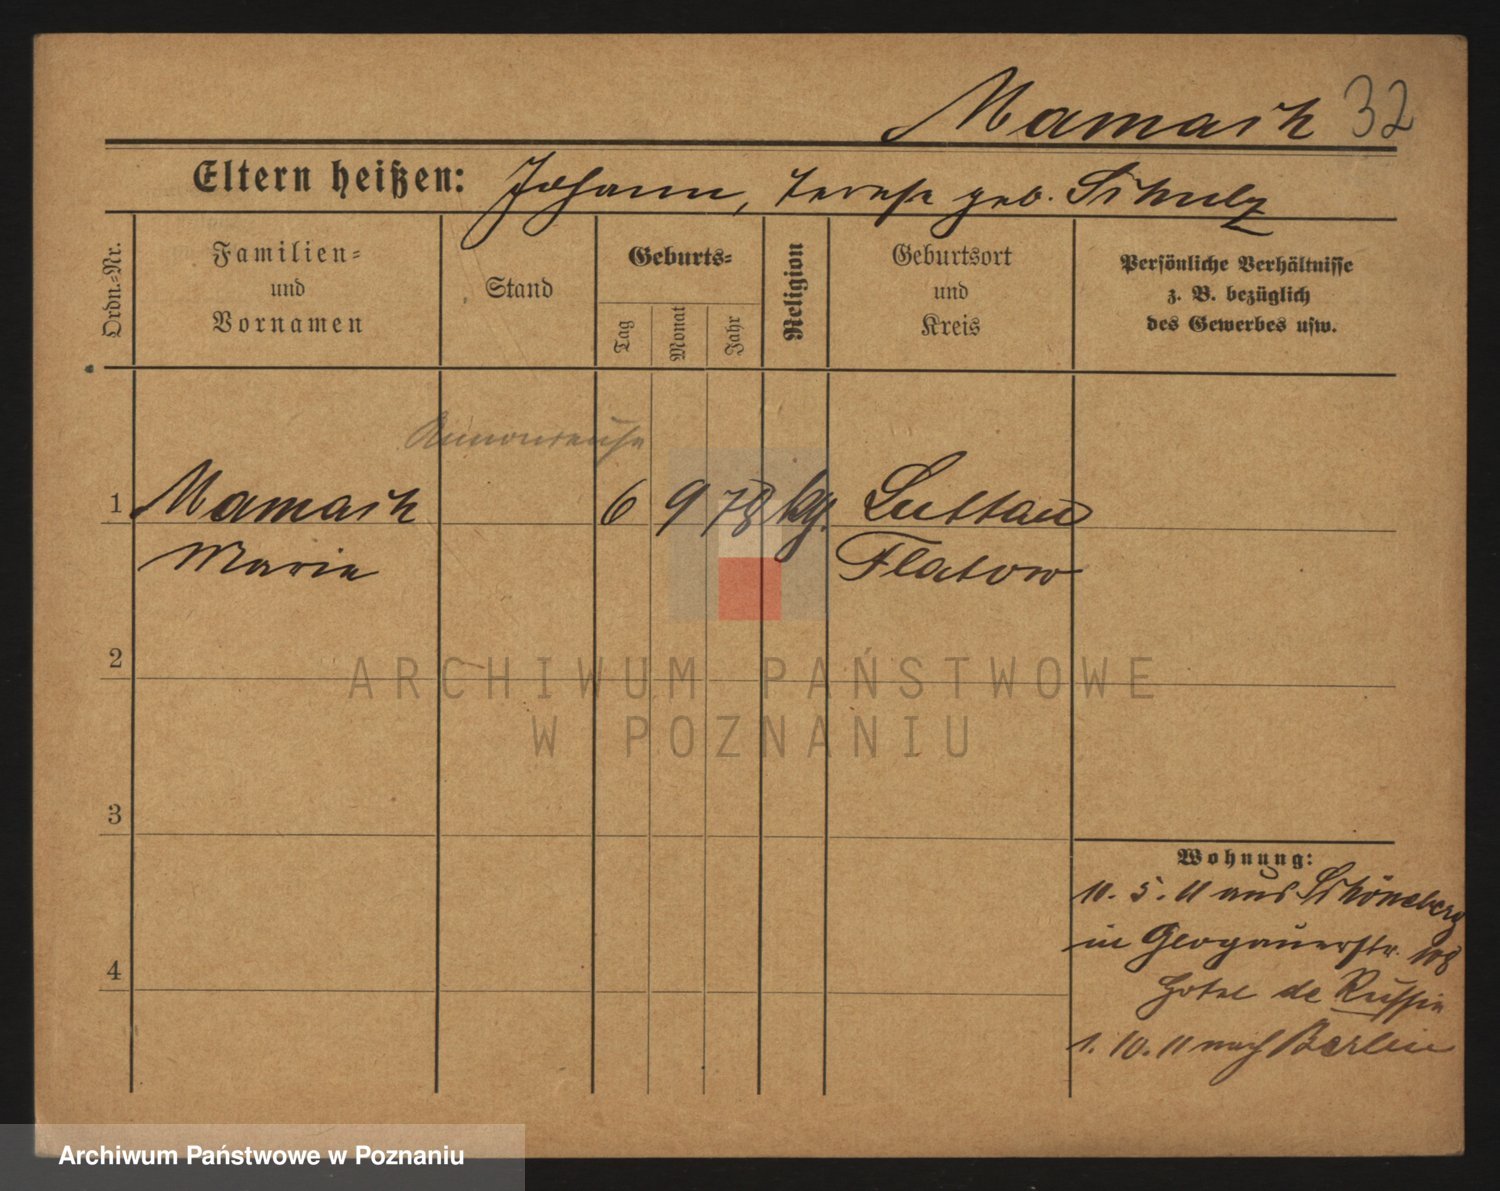 Mamach 32
Eltern heißen: Johann, Terese geb. Schulz
Ordn.=Nr.
Familien=
und
Vornamen
Stand
Geburts=
Tag
Monat
Jahr
Religion
Geburtsort
und
Kreis
Persönliche Verhältnisse
z. B. bezüglich
des Gewerbes usw.
1 Mamach 6 9 78 kg. Luttau
Marie Flatow
2
3
4
Wohnung:
10. 5. 11 aus Schöneberg
in Glogauerstr. 108
Hotel de Russie
1. 10. 11 nach Berlin
ARCHIWUM PAŃSTWOWE
W POZNANIU
Archiwum Państwowe w Poznaniu